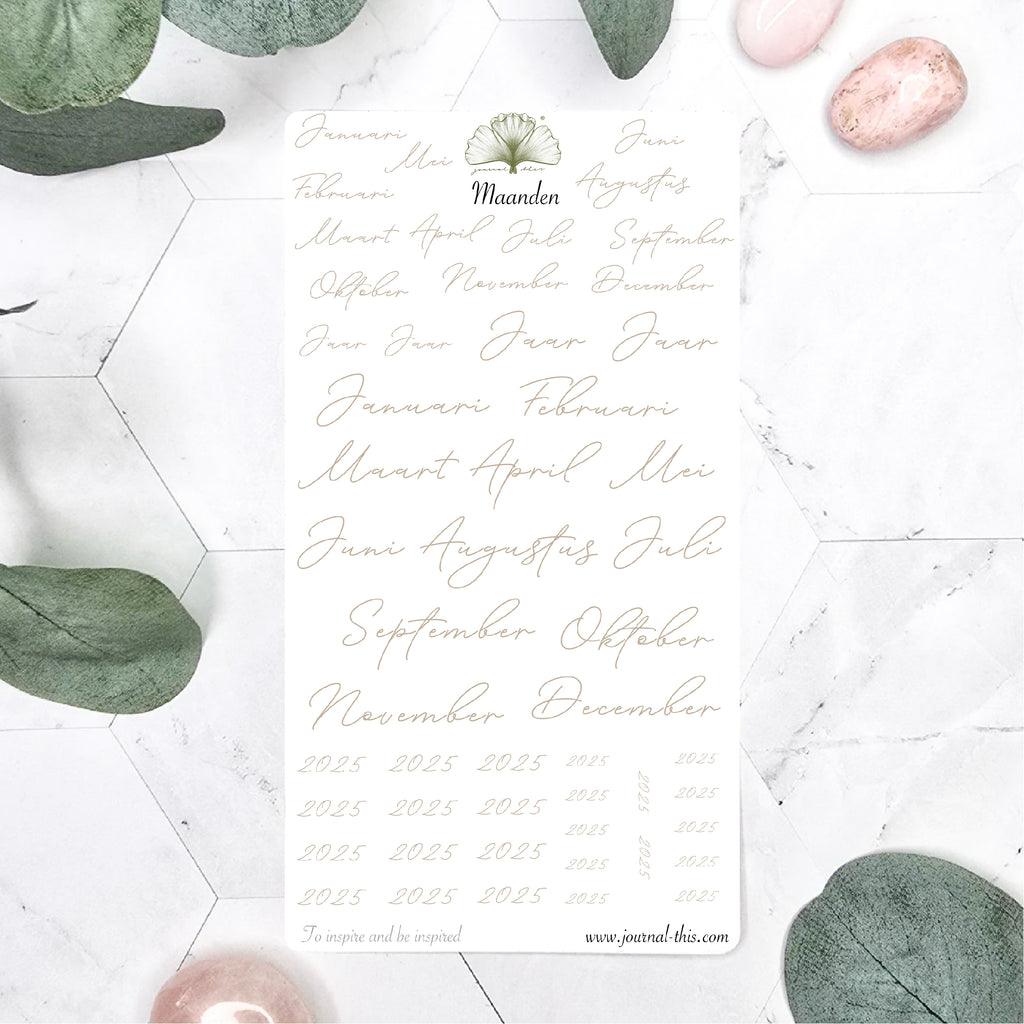 Januari Mei journal this Juni
Februari Maanden Augustus
Maart April Juli September
Oktober November December
Jaar Jaar Jaar Jaar
Januari Februari
Maart April Mei
Juni Augustus Juli
September Oktober
November December
2025 2025 2025 2025 2025
2025 2025 2025 2025 2025 2025
2025 2025 2025 2025 2025
2025 2025 2025 2025 2025 2025
2025 2025 2025 2025 2025
To inspire and be inspired www.journal-this.com